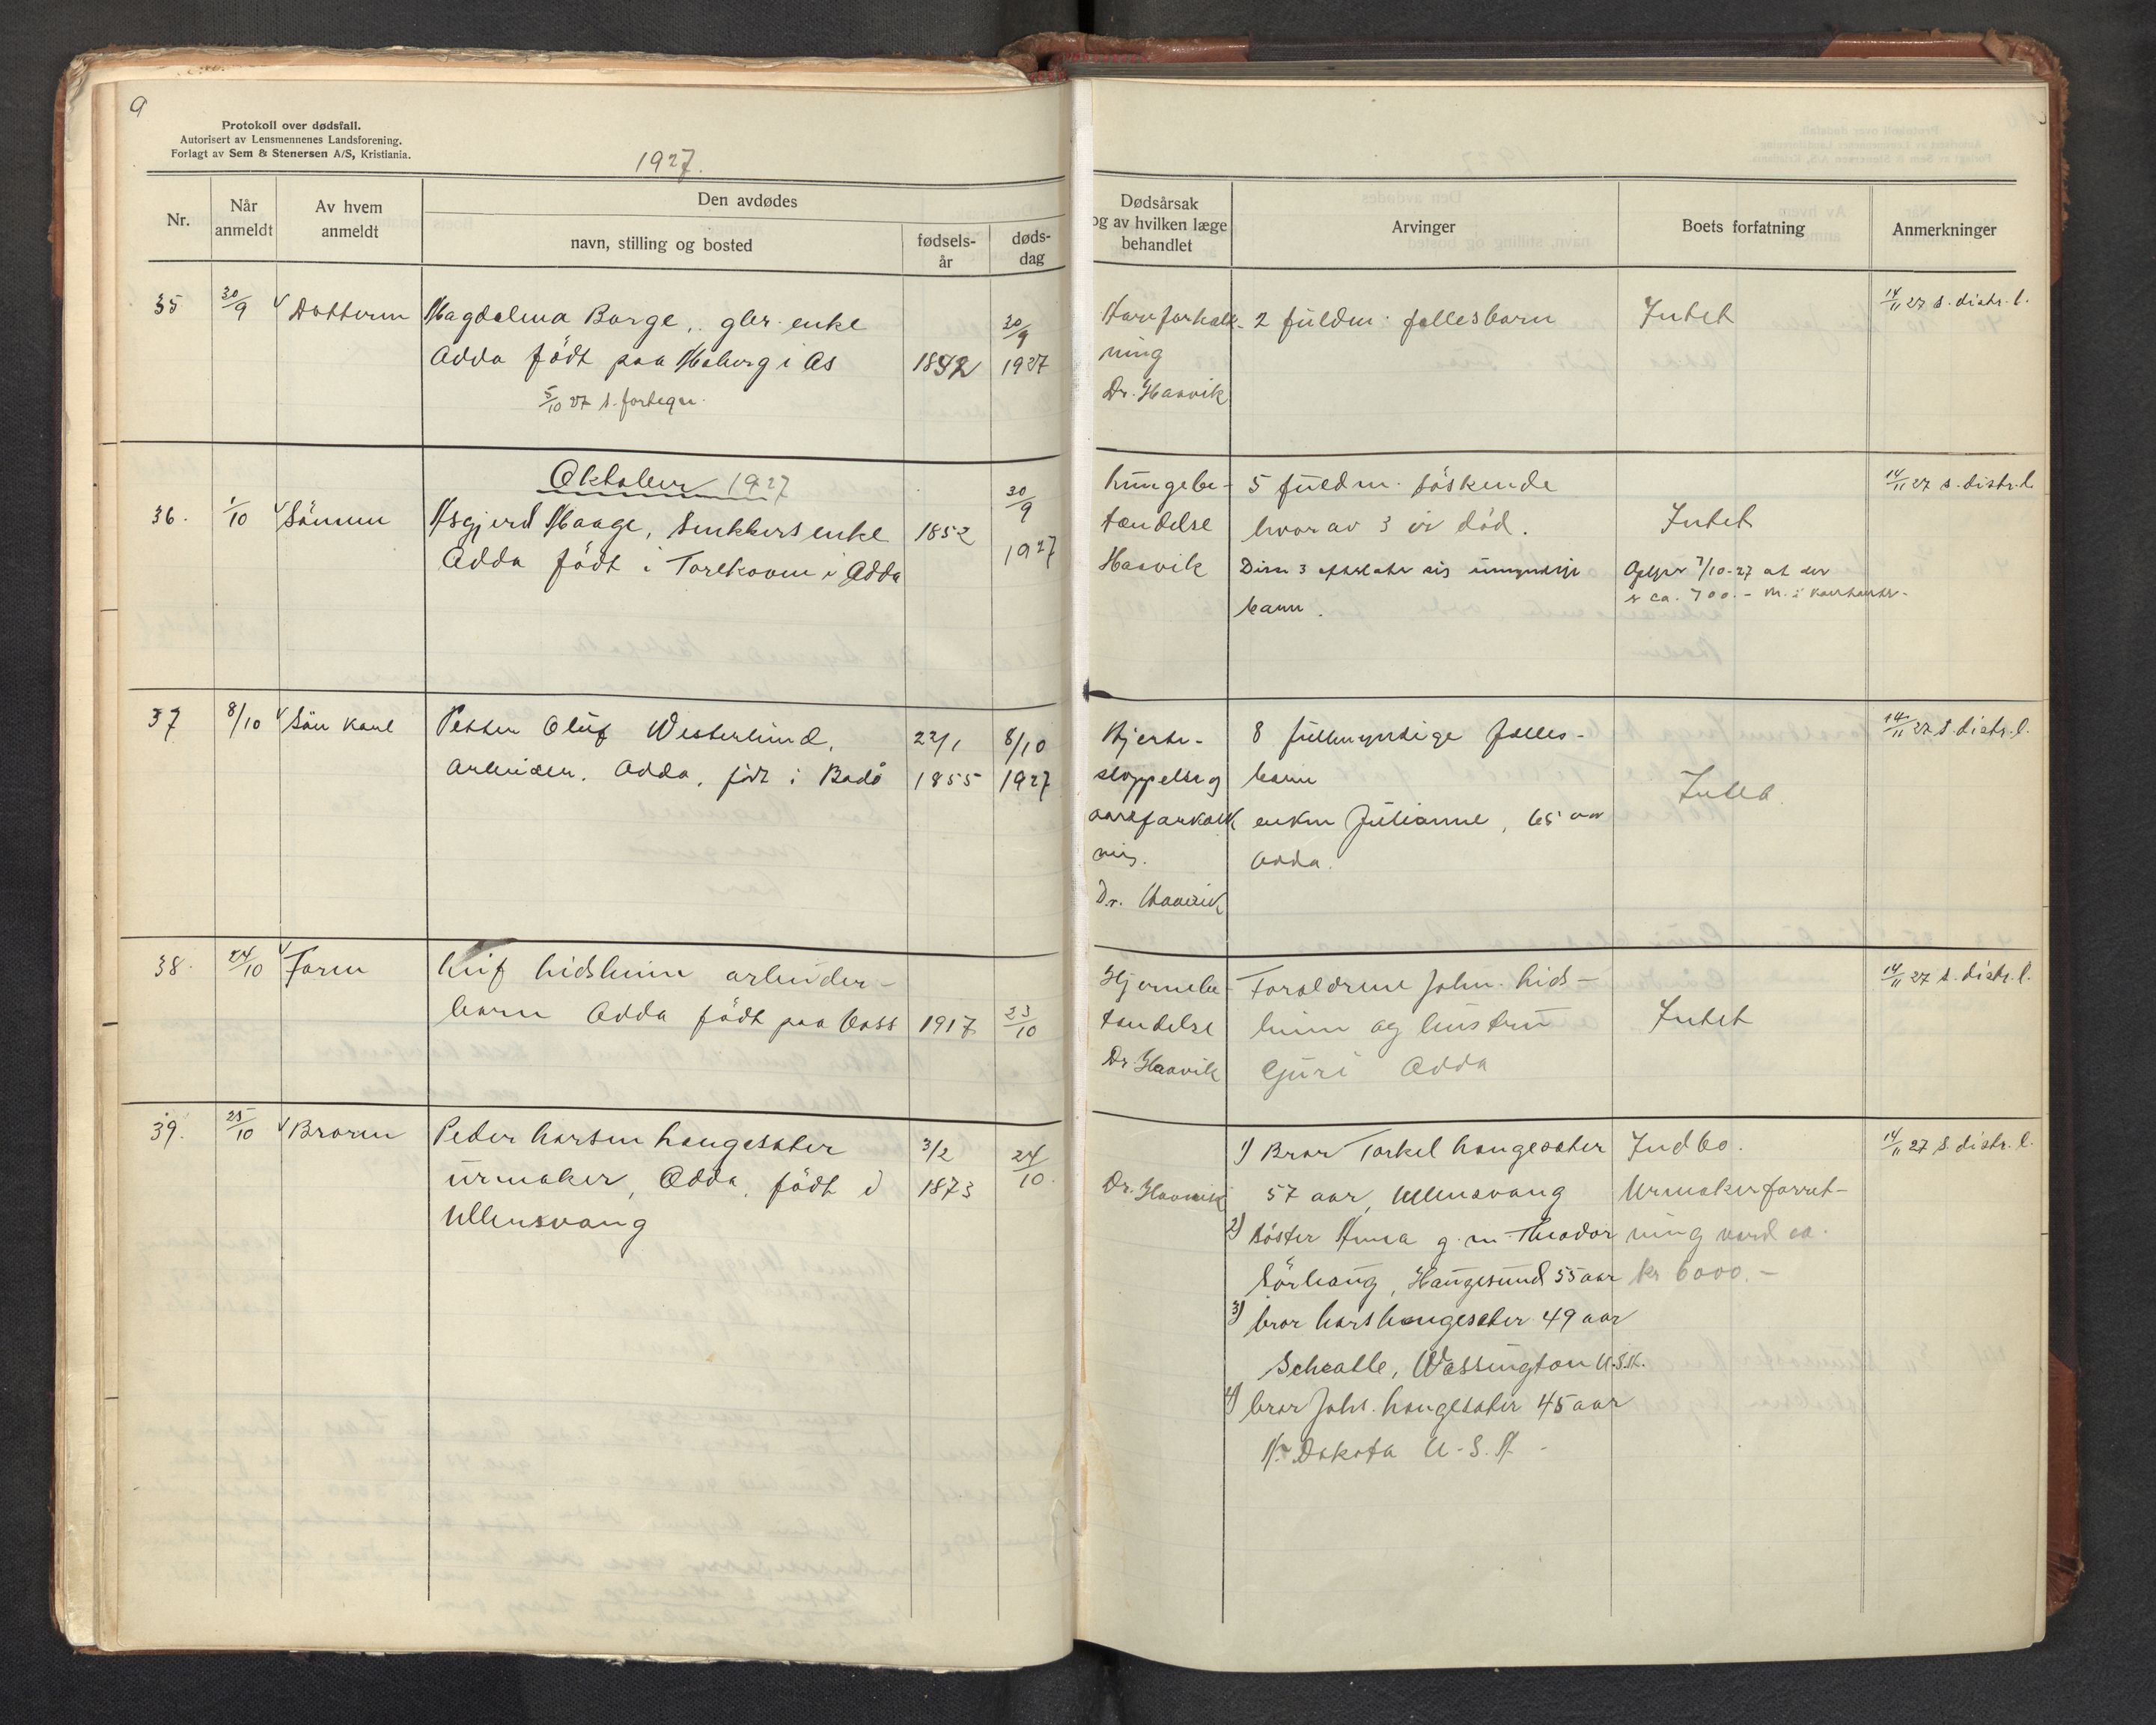 9
Protokoll over dødsfall.
Autorisert av Lensmennenes Landsforening.
Forlagt av Sem & Stenersen A/S, Kristiania.
1927.
Nr.
Når anmeldt
Av hvem anmeldt
Den avdødes
navn, stilling og bosted
fødsels-
år
døds-
dag
35 30/9 Datteren Magdalena Borge, enke 30/9
Odda födt paa i As 1892 1927
5/10 27 s.
Oktober 1927
36. 1/10 Sönnen Asgjerd Haage, enke 1852 30/9 1927
Odda födt i i Odda
37 8/10 Sön Karl Petter Oluf Westerlund, 22/1 8/10
arbeider. Odda, föt i Bodö 1855 1927
38. 24/10 Faren Leif Lidsheim arbeider-
barn Odda födt paa Voss 1917 23/10
39. 25/10 Broren Peder Larsen Langesæter 3/2 24/10.
urmaker, Odda, födt i 1873
Ullensvang
Dødsårsak
og av hvilken læge
behandlet
Arvinger
Boets forfatning
Anmerkninger
Aareforkalk-
ning
Dr. Haavik
2 fuldm. fellesbarn
Intet
14/11 27 s. distr. l.
Lungebe-
tændelse
Haavik
5 fuldm. söskende
hvorav 3 er död.
Disse 3 efterlater sig umyndige
barn.
Intet
Oplyses 7/10-27 at der
er ca. 700.-
14/11 27 s. distr. l.
Hjerte-
aareforkalk
ning.
Dr. Haavik
8 fuldmyndige felles-
barn
enken Julianne, 65 aar
Odda.
Intet.
14/11 27 s. distr. l.
Hjernebe-
tændelse
Dr. Haavik
Foreldrene John. Lids-
heim og hustru
Guri Odda
Intet
14/11 27 s. distr. l.
Dr. Haavik
1) Bror Torkel Langesæter
57 aar, Ullensvang
2) Söster Anna g. m. Theodor
Sörhaug, Haugesund 55 aar
3) bror Lars Langesæter 49 aar
Scheatle, Wassington U.S.A.
4) bror Johs. Langesæter 45 aar
N. Dakota U.S.A.
Indbo.
Urmakerforret-
ning verd ca.
kr 6000.-
14/11 27 s. distr. l.